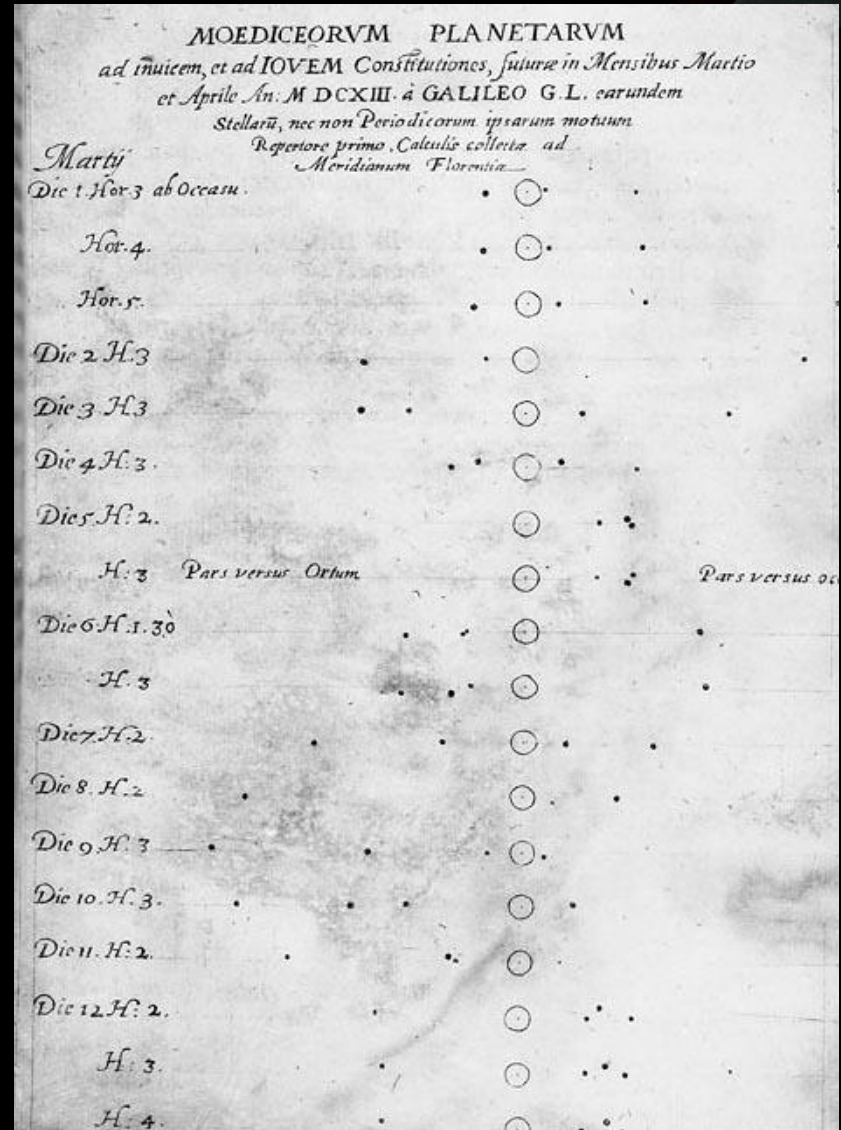 MOEDICEORVM PLANETARVM
ad inuicem, et ad IOVEM Constitutiones, futuræ in Mensibus Martio
et Aprile An: M DCXIII. à GALILEO G.L. earundem
Stellarū, nec non Periodicorum ipsarum motuum
Repertore primo. Calculis collectæ ad
Meridianum Florentiæ
Martij
Die 1. Hor. 3 ab Occasu.
Hor. 4.
Hor. 5.
Die 2 H. 3
Die 3 H. 3
Die 4 H: 3.
Die 5 H: 2.
H: 3 Pars versus Ortum Pars versus occ
Die 6 H. 1. 30
H. 3
Die 7 H. 2
Die 8. H. 2
Die 9. H: 3
Die 10. H. 3.
Die 11. H: 2.
Die 12 H: 2.
H: 3.
H: 4.